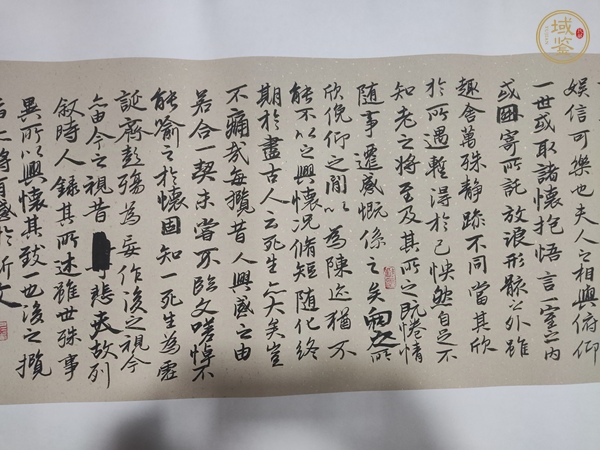 娱信可樂也夫人之相與俯仰
一世或取諸懷抱悟言一室之内
或因寄所託放浪形骸之外雖
趣舍萬殊静躁不同當其欣
於所遇蹔得於己怏然自足不
知老之將至及其所之既惓情
随事遷感慨係之矣向之所
欣俛仰之閒以為陳迹猶不
能不以之興懷況脩短随化終
期於盡古人云死生亦大矣豈
不痛哉每攬昔人興感之由
若合一契未嘗不臨文嗟悼不
能喻之於懷固知一死生為虛
誕齊彭殤為妄作後之視今
亦由今之視昔悲夫故列
叙時人錄其所述雖世殊事
異所以興懷其致一也後之攬
將有感於斯文
域鉴